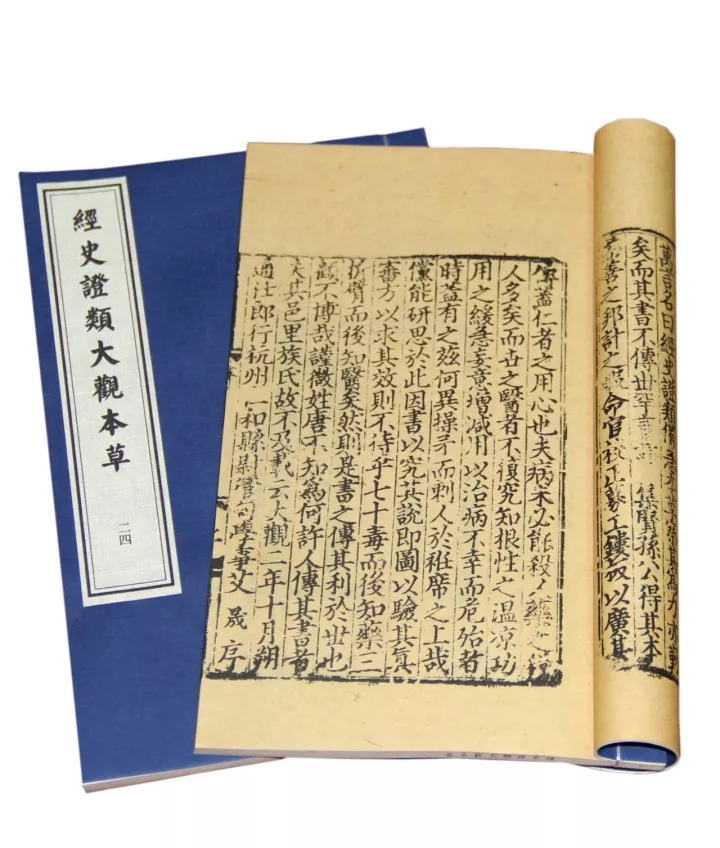 經史證類大觀本草
二四
萬言名曰經史證類備急本草察其為力亦勤
矣而其書不傳世罕言焉 集賢孫公得其本
而善之邦計之暇命官校正募工鏤板以廣其
傳蓋仁者之用心也夫病未必能殺人藥之
人多矣而世之醫者不復究知根性之溫涼功
用之緩急妄意增減用以治病不幸而危殆者
時蓋有之茲何異操矛而刺人於袵席之上哉
儻能研思於此因書以究其說即圖以驗其真
審方以求其效則不待乎七十毒而後知藥三
折臂而後知醫矣然則是書之傳其利於世也
顧不博哉謹微姓唐不知為何許人傳其書者
失其邑里族氏故不及載云大觀二年十月朔
通仕郎行杭州仁和縣尉管句學事艾晟序